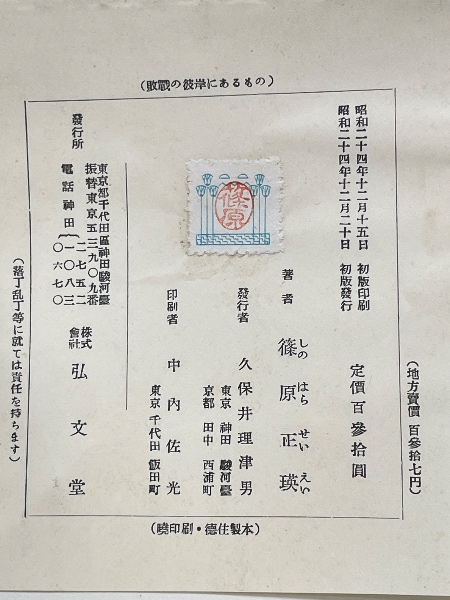 (敗戰の彼岸にあるもの)
昭和二十四年十二月十五日 初版印刷
昭和二十四年十二月二十日 初版發行
定價百參拾圓
(地方賣價 百參拾七円)
篠原
著者 篠原正瑛
しの はら せい えい
發行者 久保井理津男
東京 神田 駿河臺
京都 田中 西浦町
印刷者 中內佐光
東京 千代田 飯田町
發行所
東京都千代田區神田駿河臺
振替東京五三九〇九番
電話神田{二七五二
一〇八三
〇六七〇
株式會社 弘文堂
(落丁乱丁等に就ては責任を持ちます)
(曉印刷・德住製本)